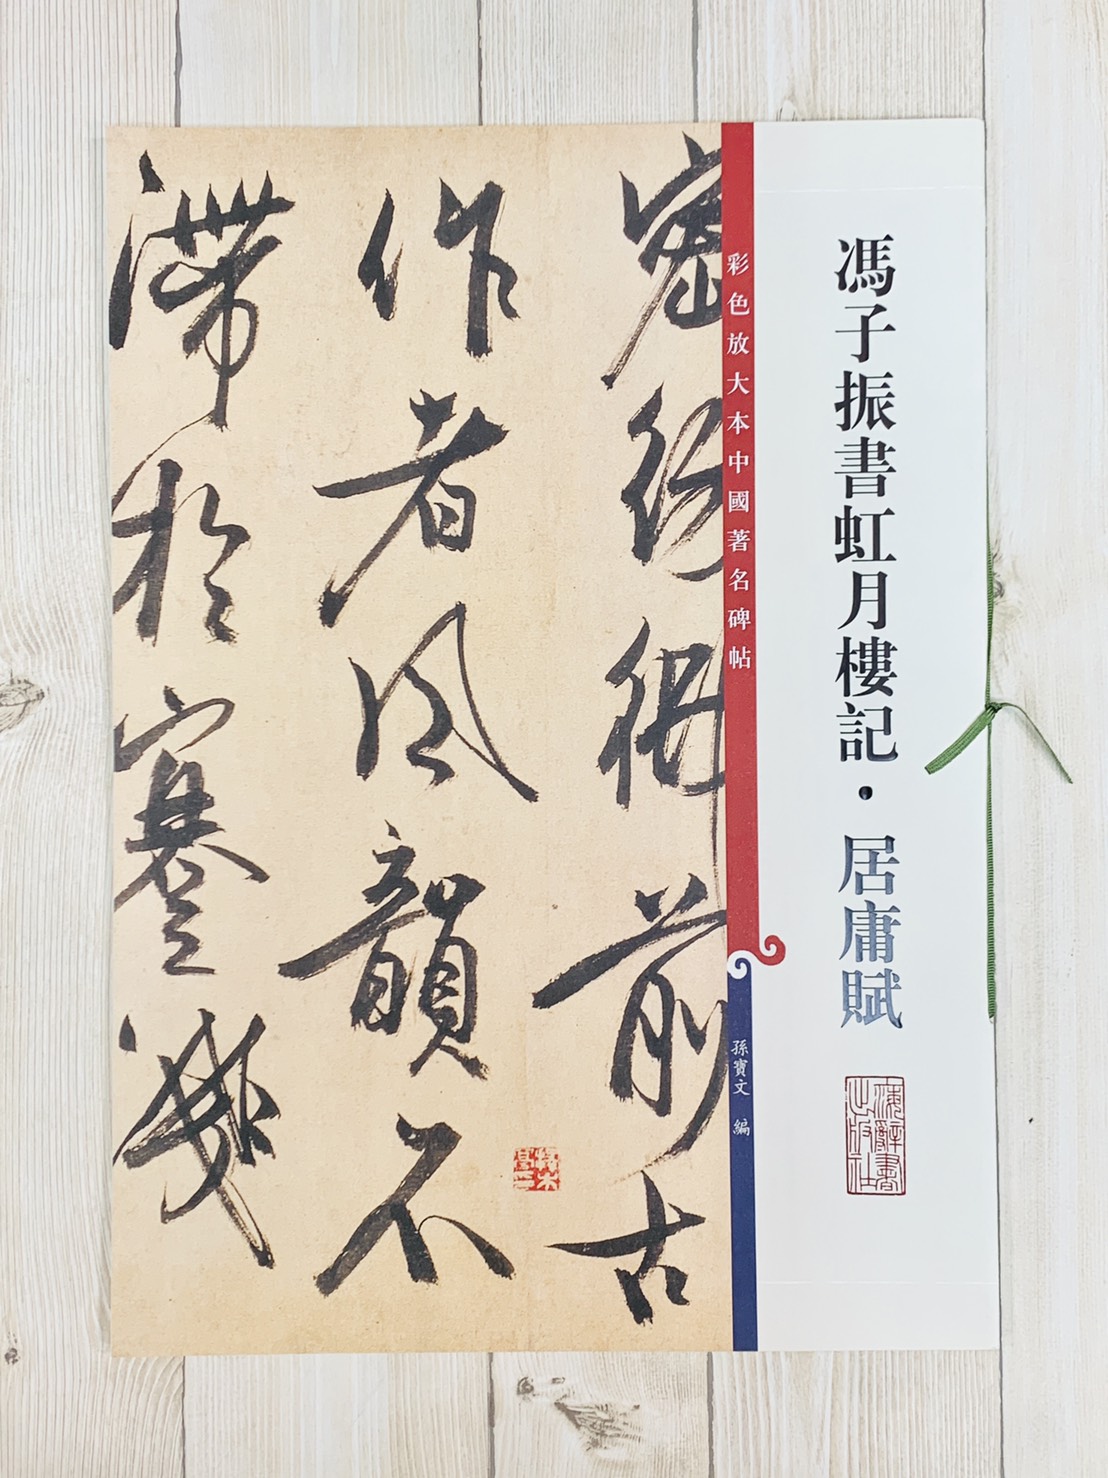 馮子振書虹月樓記·居庸賦
海辭書出版社
彩色放大本中國著名碑帖
孫寶文 編
前古
作者風韻不
滯於蹇